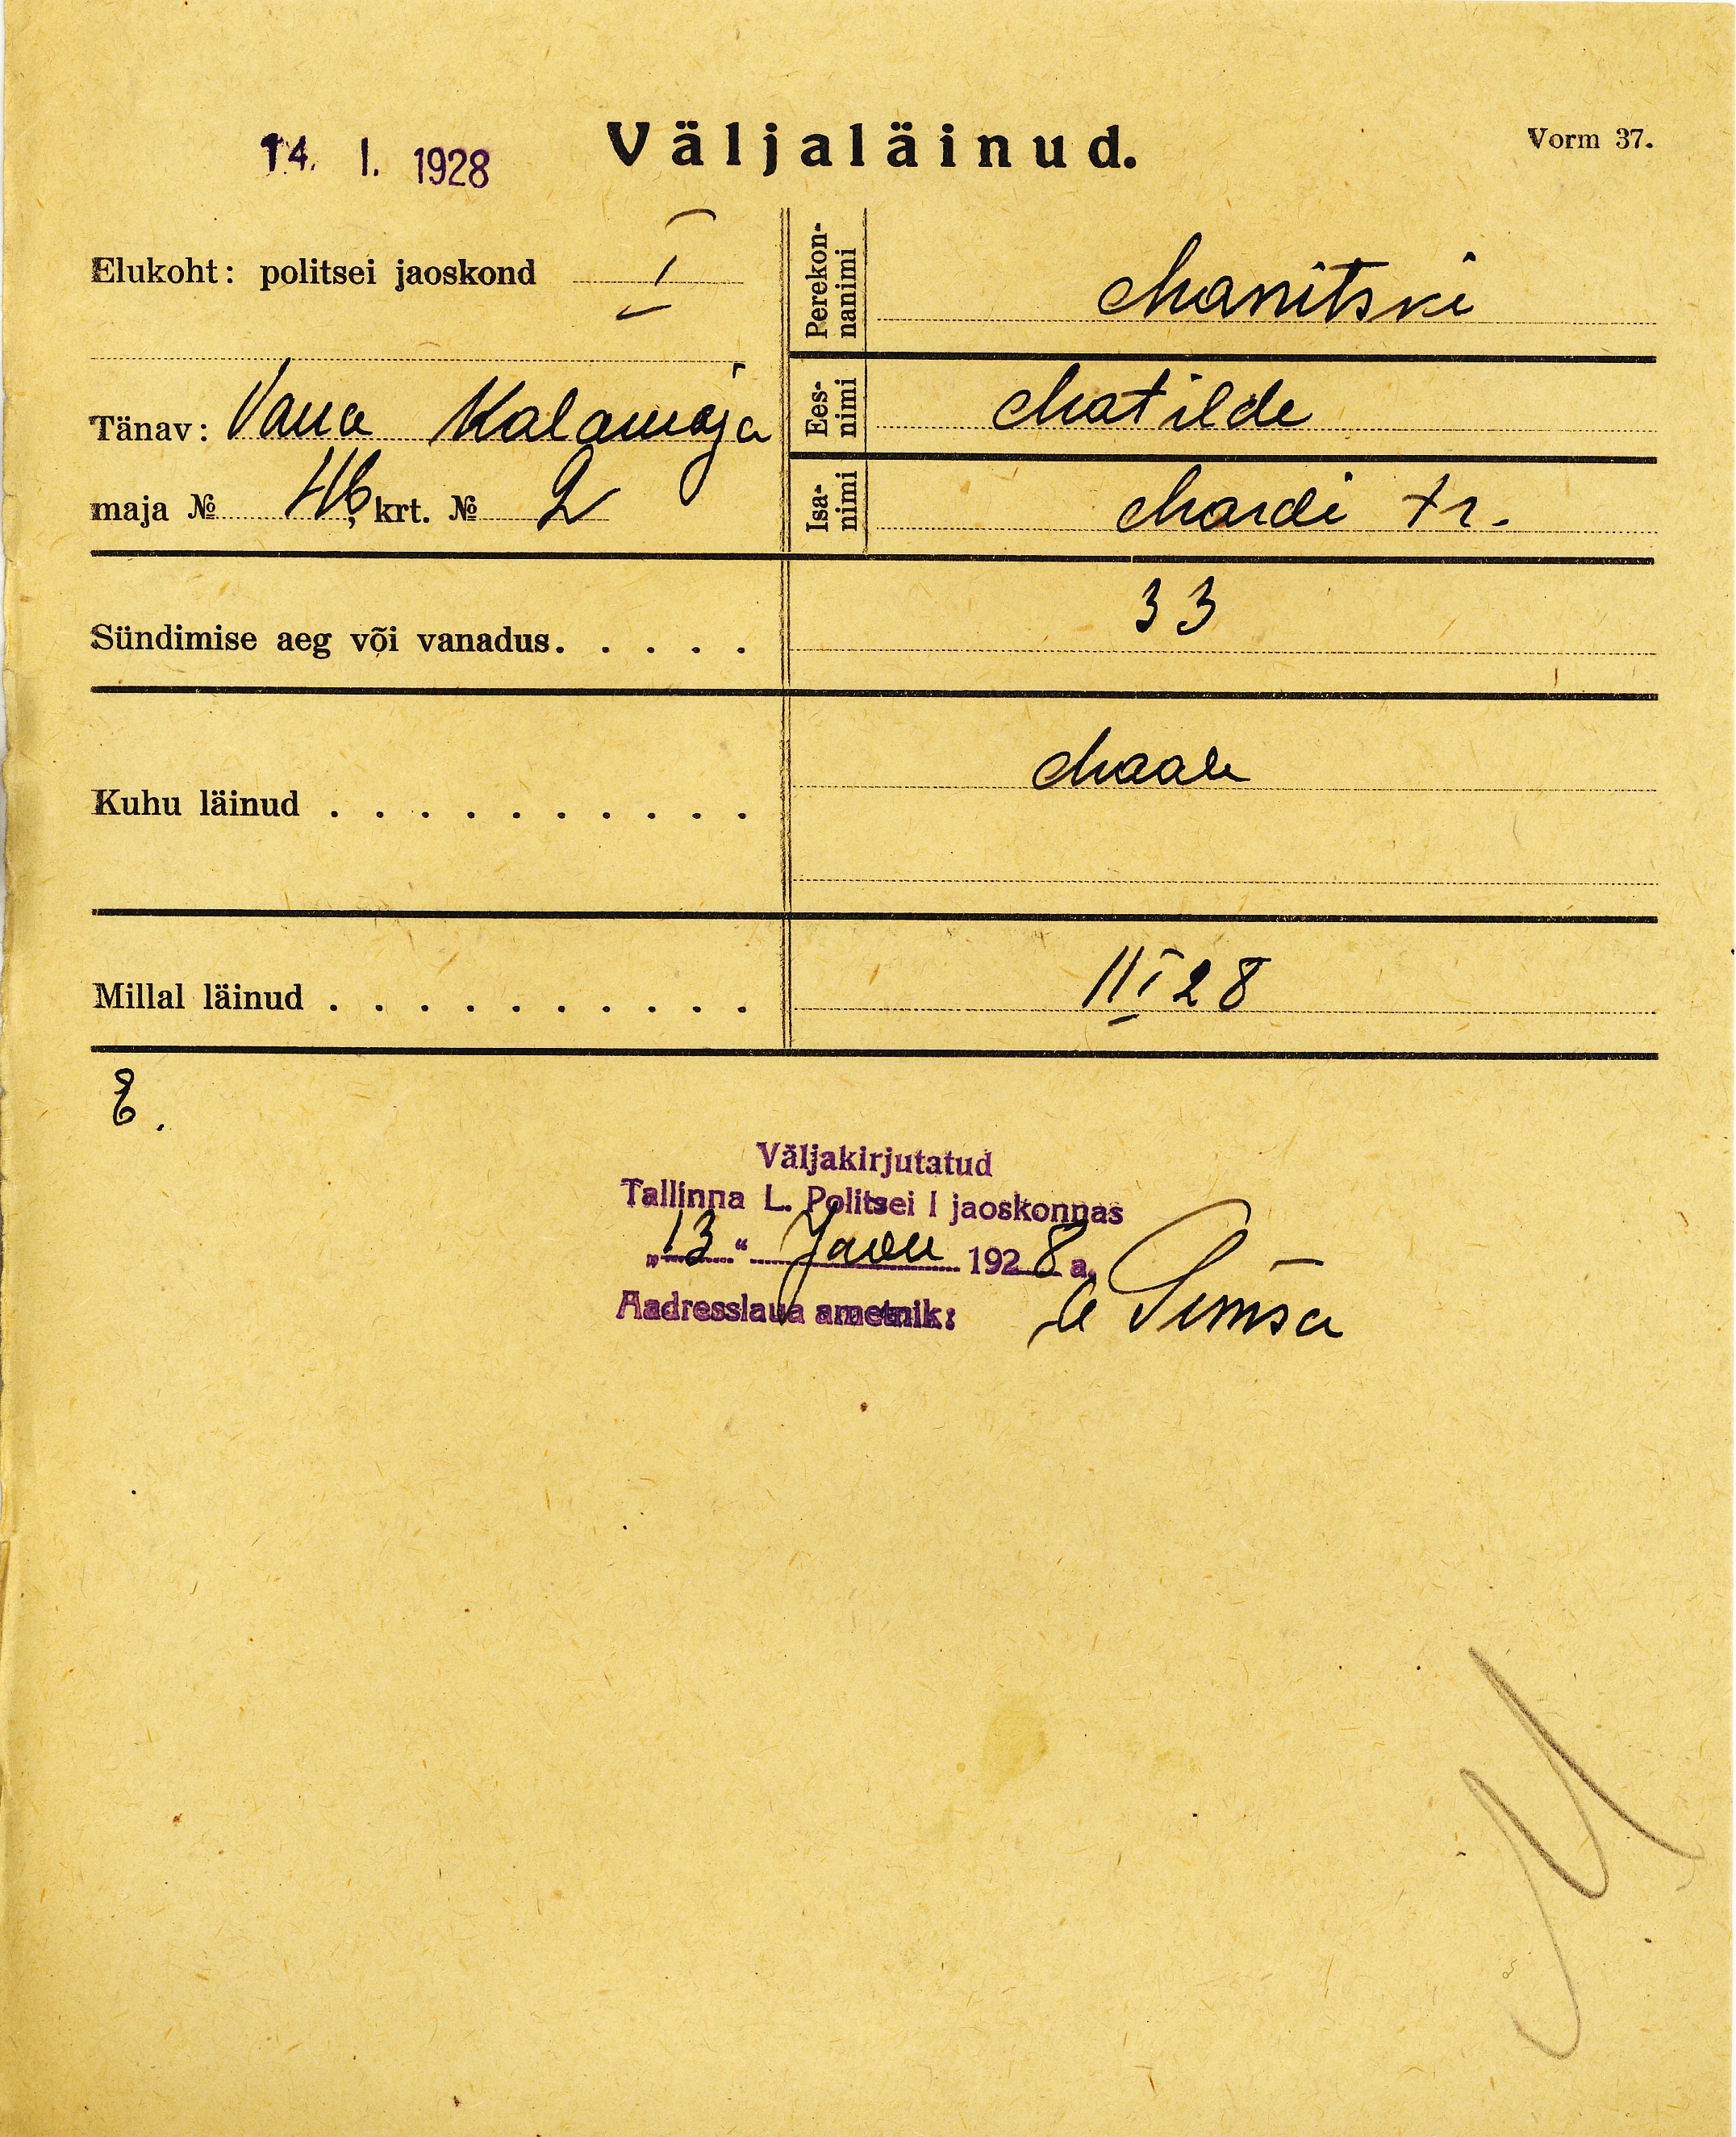 14. I. 1928 Väljaläinud. Vorm 37.
Elukoht: politsei jaoskond I
Perekonnanimi Manitski
Tänav: Vana Kalamaja
Eesnimi Matilde
maja № 46, krt. № 2
Isanimi Mardi tr.
Sündimise aeg või vanadus. . . . . 33
Kuhu läinud . . . . . . . . . . Maale
Millal läinud . . . . . . . . . . 11 I 28
E.
Väljakirjutatud
Tallinna L. Politsei I jaoskonnas
„13“ Jaan 1928 a.
Aadresslaua ametnik: Simsa
M